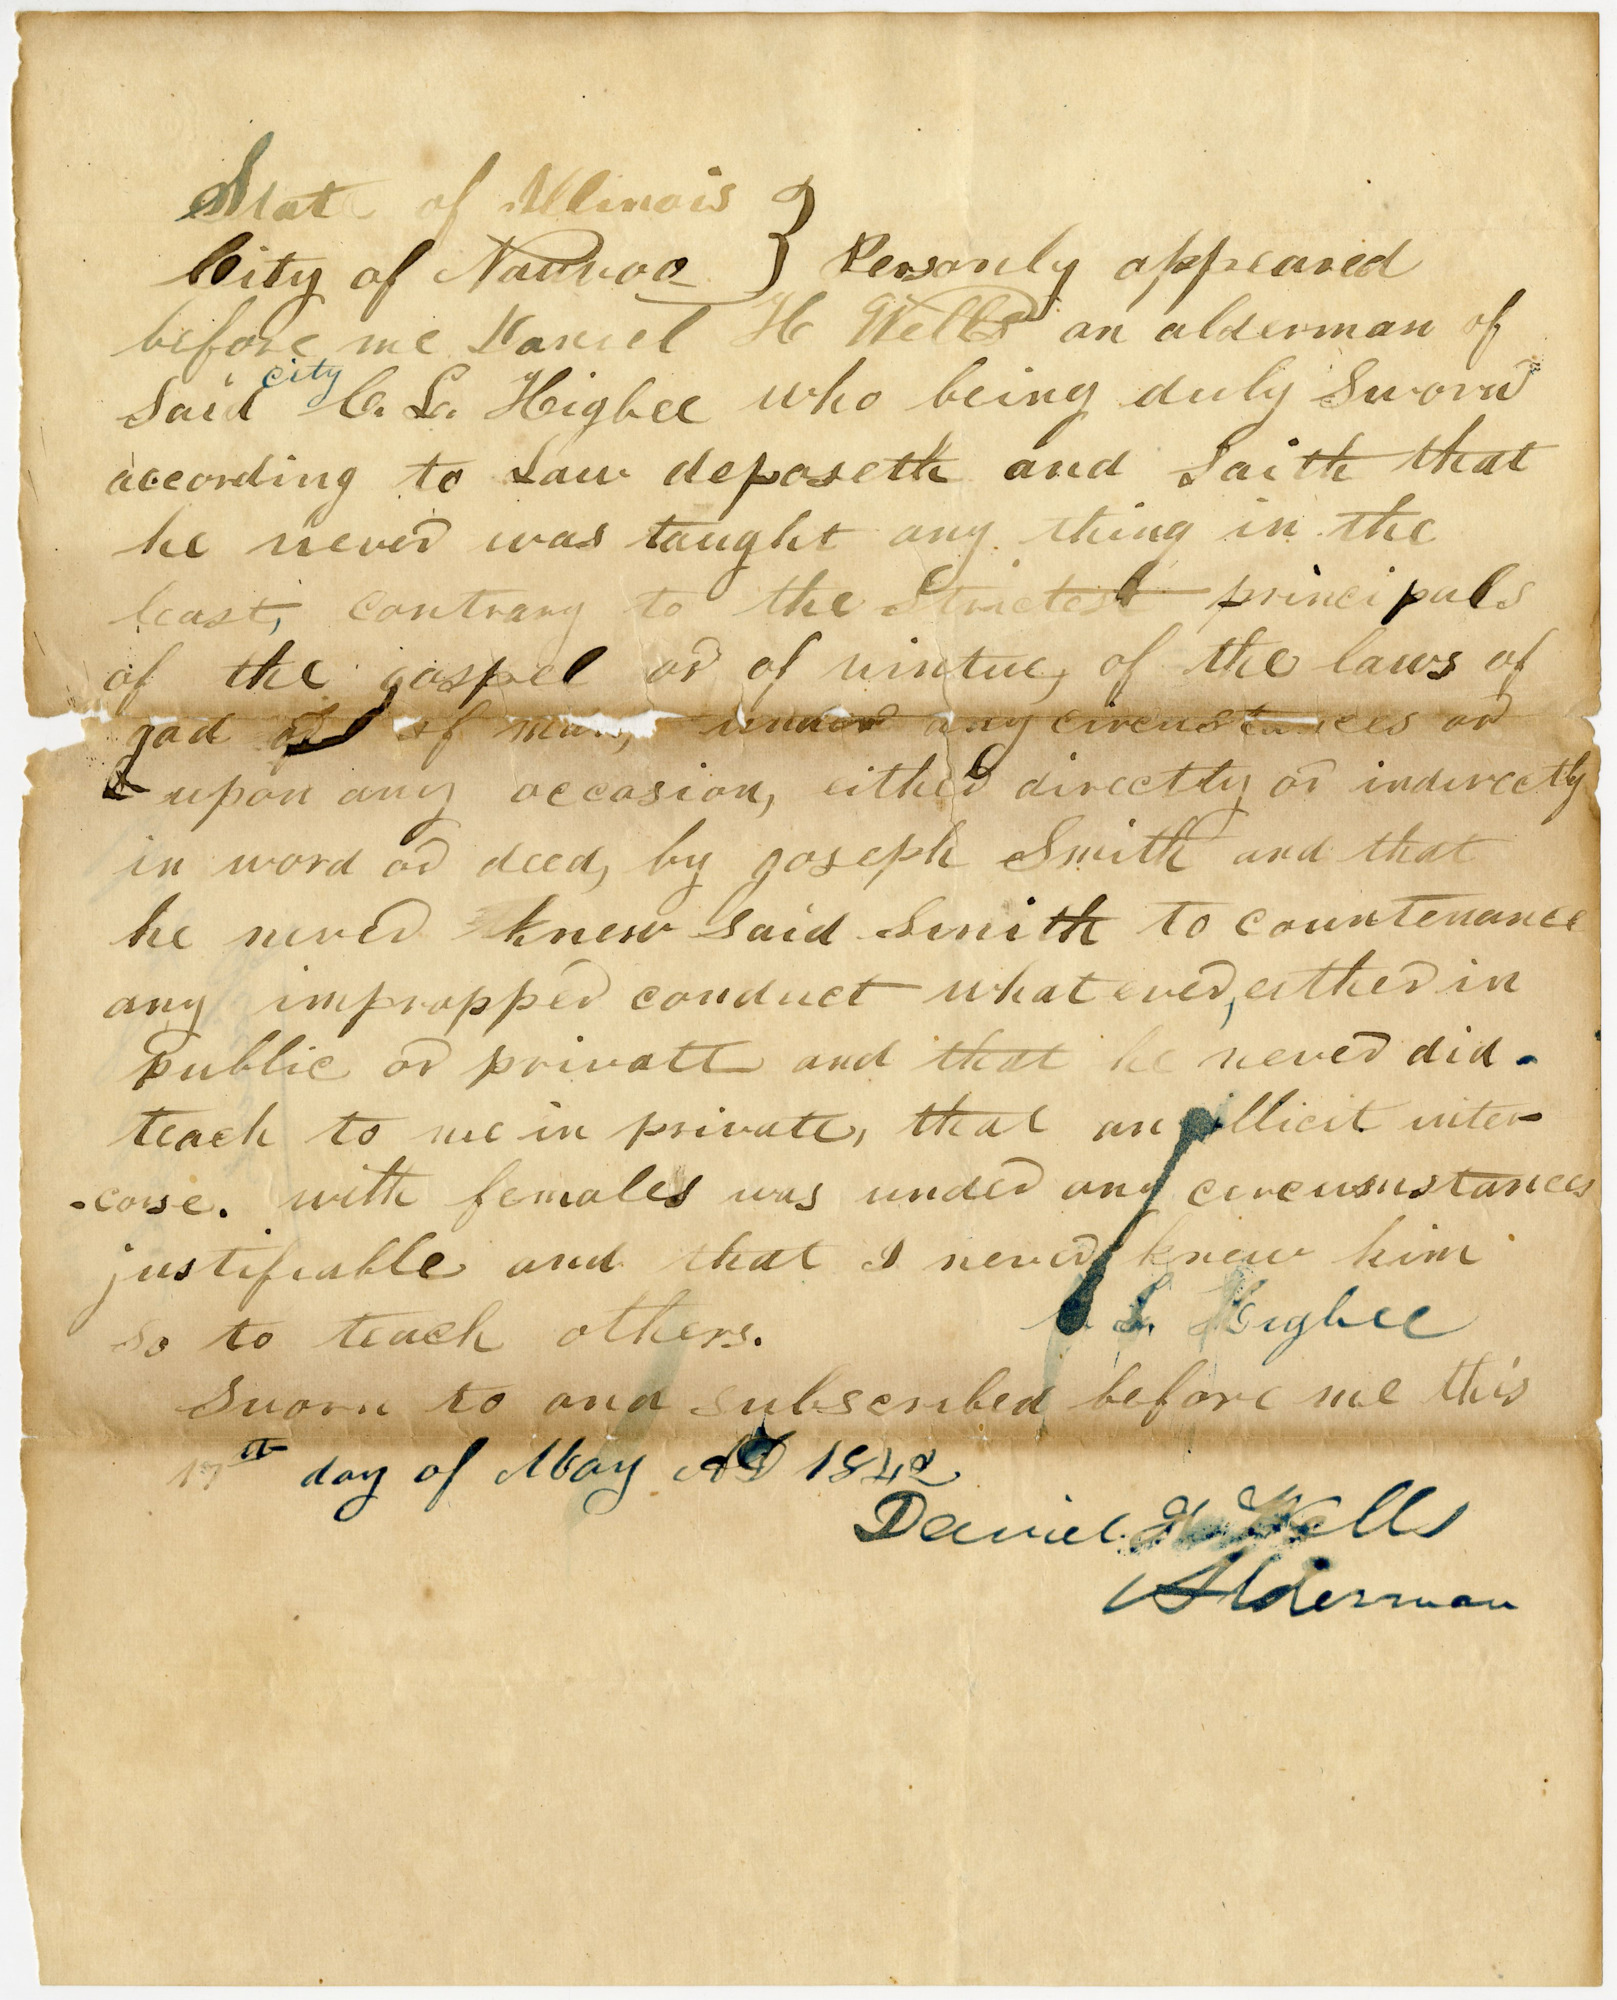 State of Illinois }
City of Nauvoo } Personly appeared
before me Daniel H Wells an alderman of
said city C. L. Higbee who being duly sworn
according to Law deposeth and saith that
he never was taught any thing in the
least, contrary to the strictest principals
of the gospel or of virtue, of the laws of
god or of man, under any circunstances or
upon any occasion, either directly or indirectly
in word or deed, by Joseph Smith and that
he never knew said Smith to countenance
any impropper conduct whatever, either in
public or private and that he never did
teach to me in private, that an illicit inter-
-corse. with females was under any circumstances
justifiable and that I never knew him
so to teach others. L. Higbee
Sworn to and subscribed before me this
17th day of May AD 1842
Daniel H Wells
Alderman